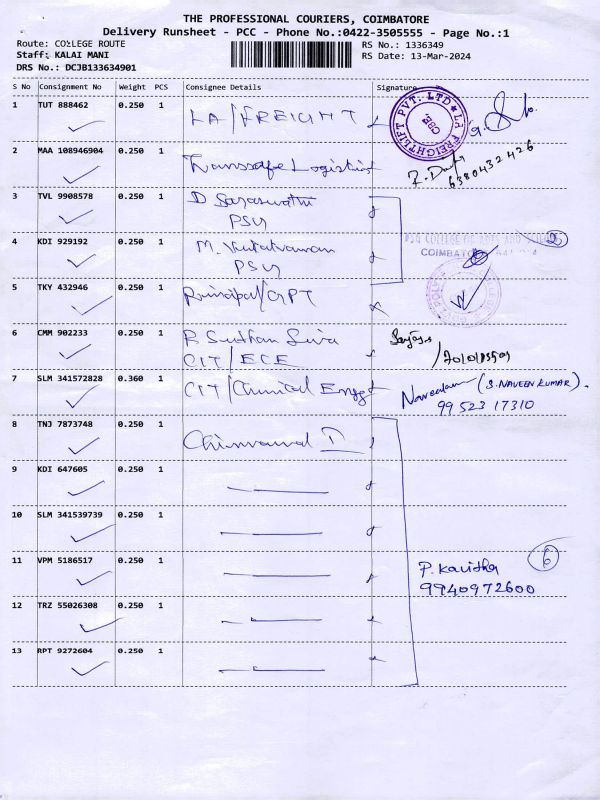 THE PROFESSIONAL COURIERS, COIMBATORE
Delivery Runsheet - PCC - Phone No.:0422-3505555 - Page No.:1
Route: COLLEGE ROUTE
RS No.: 1336349
Staff: KALAI MANI
RS Date: 13-Mar-2024
DRS No.: DCJB133634901
S No Consignment No Weight PCS Consignee Details Signature
1 TUT 888462 0.250 1 LA/FREIGHT
FREIGHTLIFT PVT. LTD
CBE
2 MAA 108946904 0.250 1 Transsafe Logistics
6380432426
3 TVL 9908578 0.250 1 D Saraswathi
PSG
4 KDI 929192 0.250 1 M.
PSG
2
COIMBATORE
5 TKY 432946 0.250 1 Principal/GPT
6 CMM 902233 0.250 1 Siva
CIT/ECE
7 SLM 341572828 0.360 1 CIT/Chemical Engg
(S. NAVEEN KUMAR).
99 523 17310
8 TNJ 7873748 0.250 1
9 KDI 647605 0.250 1
10 SLM 341539739 0.250 1
11 VPM 5186517 0.250 1
P. Kavitha
9940972600
6
12 TRZ 55026308 0.250 1
13 RPT 9272604 0.250 1